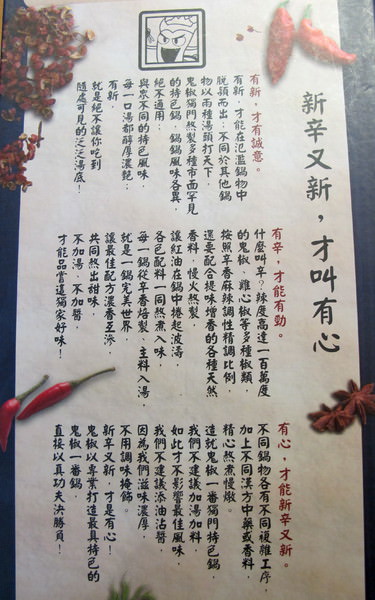 新辛又新，才叫有心
有新，才有誠意。
有新，才能在氾濫鍋物中
脫穎而出；不同於其他鍋
物以兩種湯頭打天下，
鬼椒獨門熬製多種市面罕見
的特色鍋，鍋鍋風味各異，
絕不通用；
與眾不同的特色風味，
每一口湯都醇厚濃艷；
有新，
就是絕不讓你吃到
隨處可見的泛泛湯底！
有辛，才能有勁。
什麼叫辛？辣度高達一百萬度
的鬼椒、雞心椒等多種椒類，
按照辛香麻辣調性精調比例，
還要配合提味增香的各種天然
香料，慢火熬製，
讓紅油在鍋中捲起波濤，
各色配料一同熬煮入味，
每一鍋從辛香焙製、主料入湯，
就是一鍋完美世界，
讓最佳配方濃香互滲，
共同熬出甜味，
不加湯、不加醬，
才能品嘗這獨家好味！
有心，才能新辛又新。
不同鍋物各有不同複雜工序，
加上不同漢方中藥或香料，
精心熬煮慢燉。
造就鬼椒一番獨門特色鍋，
我們不建議加湯加料，
如此才不影響最佳風味，
我們不建議添油沾醬，
因為我們滋味濃厚，
不用調味掩飾。
新辛又新，才是有心！
鬼椒以專業打造最具特色的
鬼椒一番鍋，
直接以真功夫決勝負！